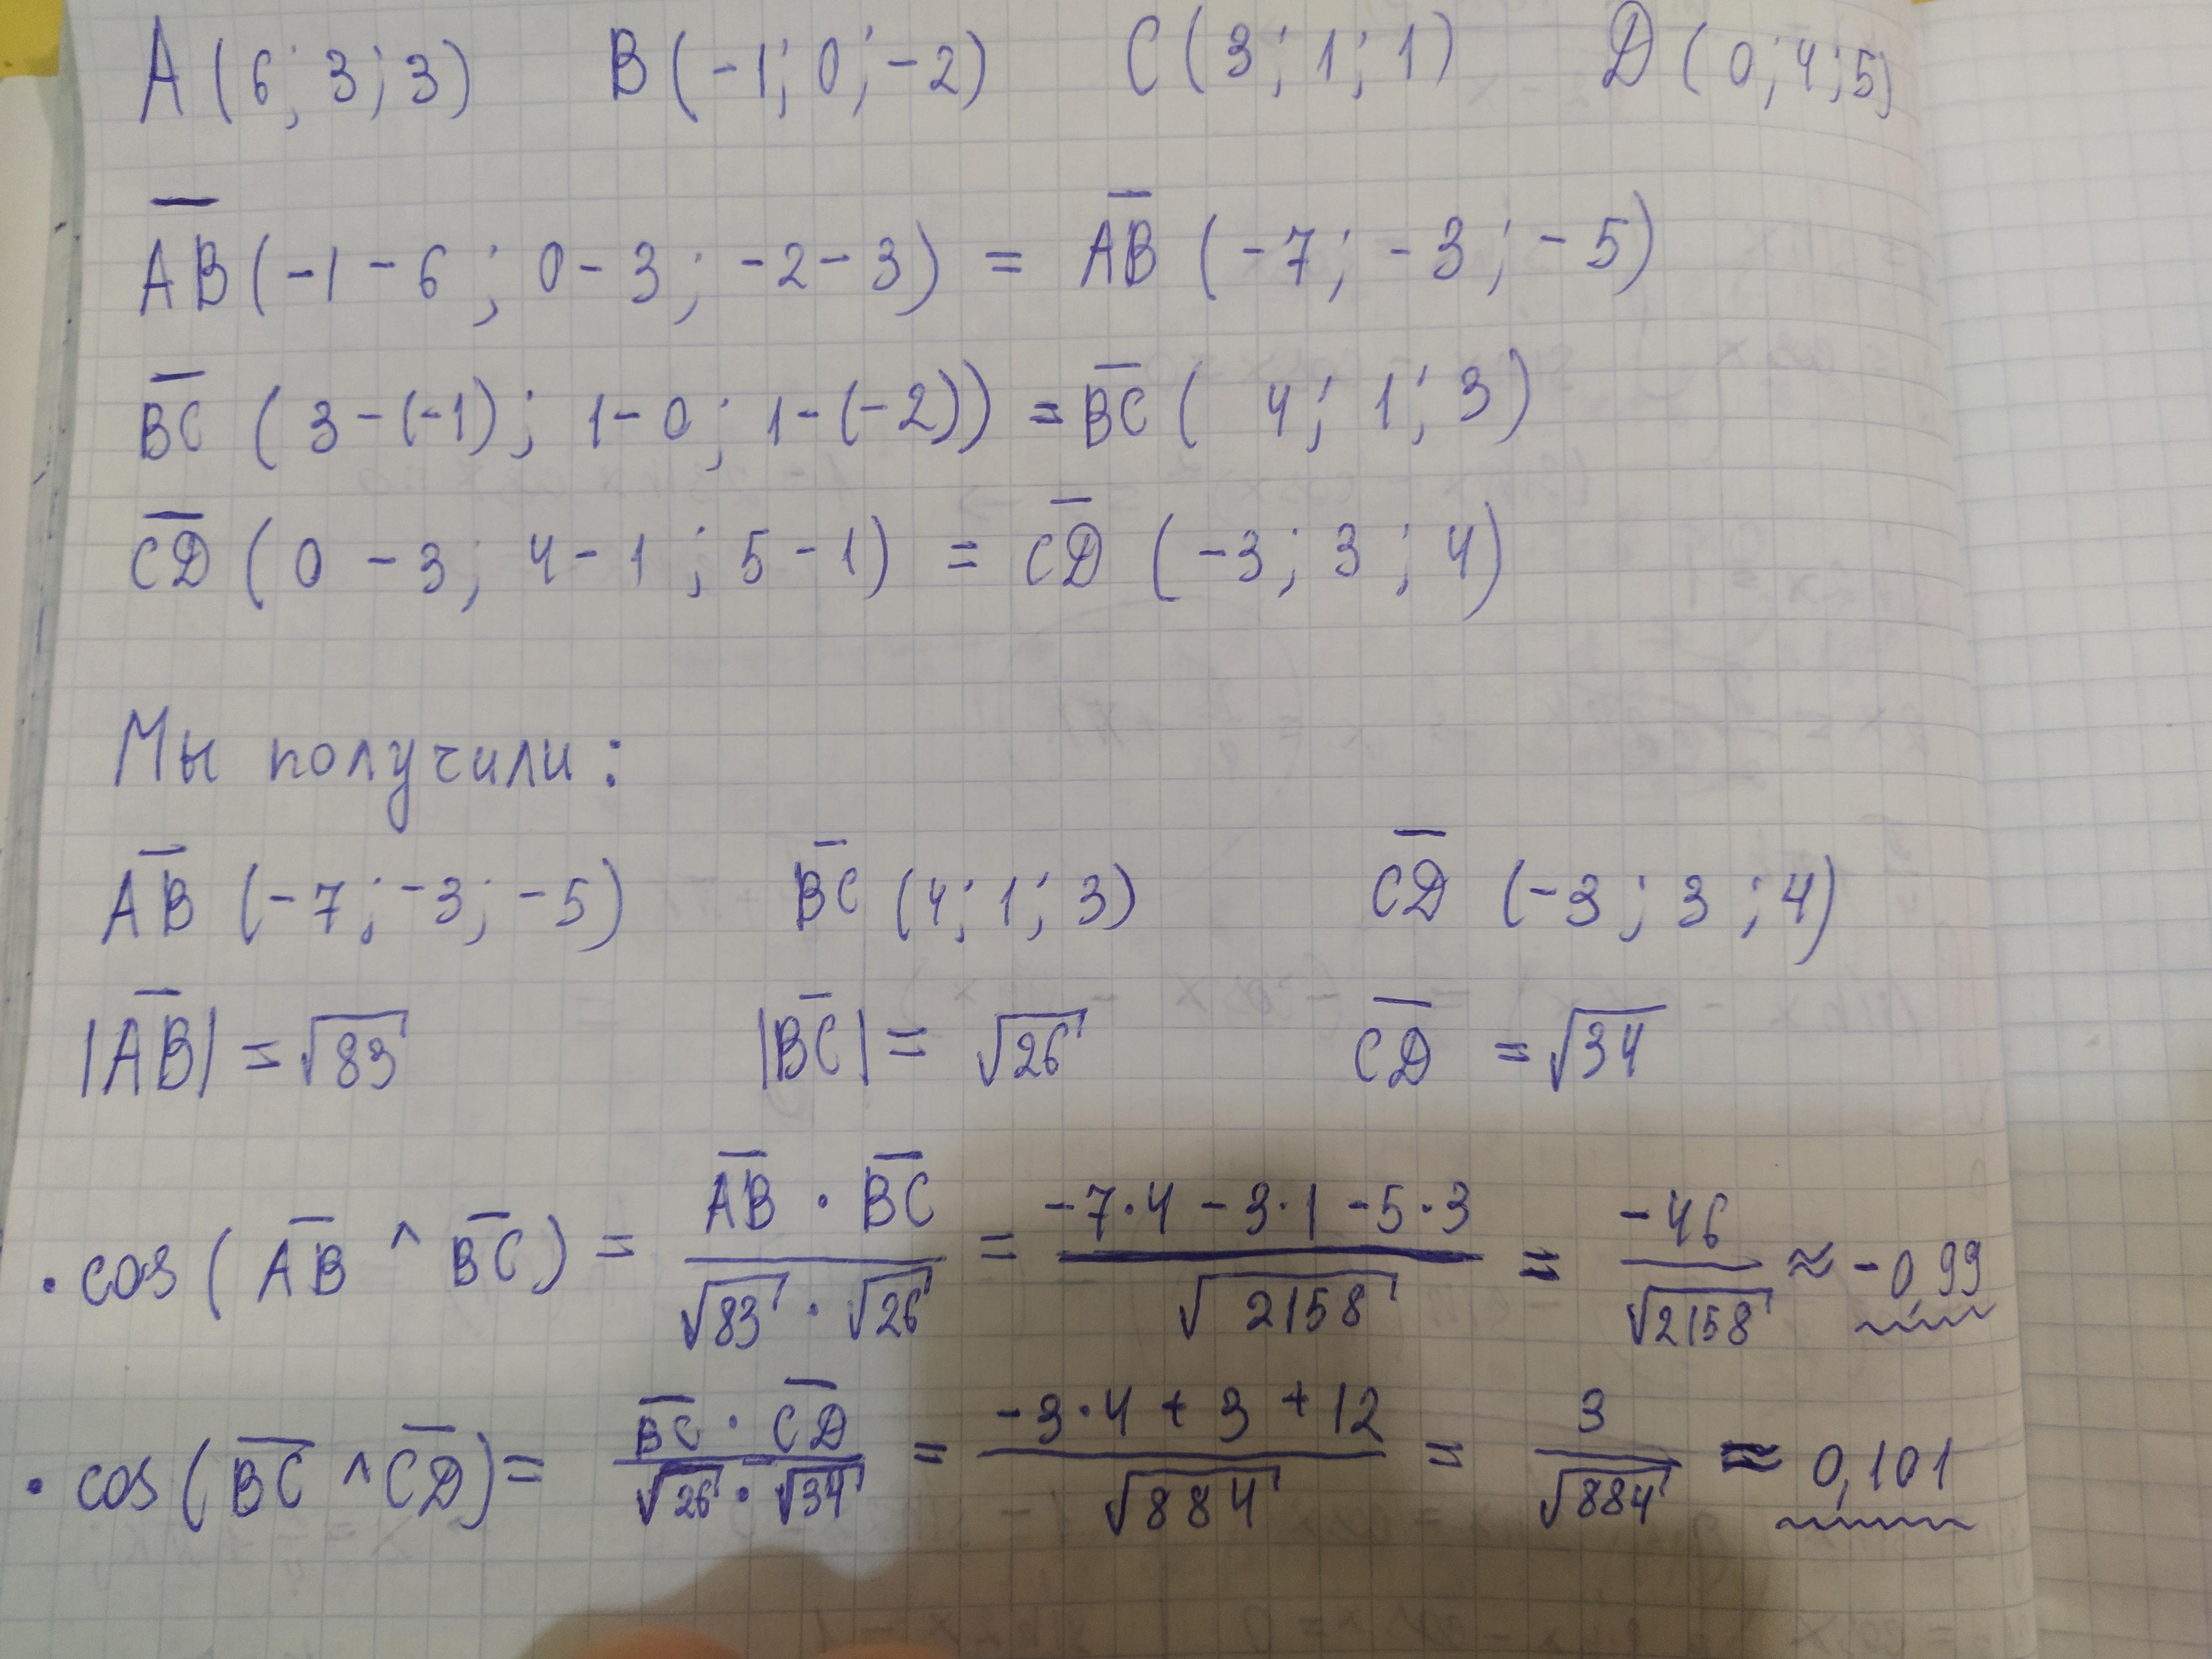 A (6; 3; 3) B (-1; 0; -2) C (3; 1; 1) D (0; 4; 5)
AB (-1 - 6; 0 - 3; -2 - 3) = AB (-7; -3; -5)
BC (3 - (-1); 1 - 0; 1 - (-2)) = BC (4; 1; 3)
CD (0 - 3; 4 - 1; 5 - 1) = CD (-3; 3; 4)
Мы получили:
AB (-7; -3; -5) BC (4; 1; 3) CD (-3; 3; 4)
|AB| = √83 |BC| = √26 CD = √34
• cos(AB ^ BC) = AB • BC / √83 • √26 = -7•4 - 3•1 - 5•3 / √2158 = -46 / √2158 ≈ -0,99
• cos(BC ^ CD) = BC • CD / √26 • √34 = -3•4 + 3 + 12 / √884 = 3 / √884 ≈ 0,101